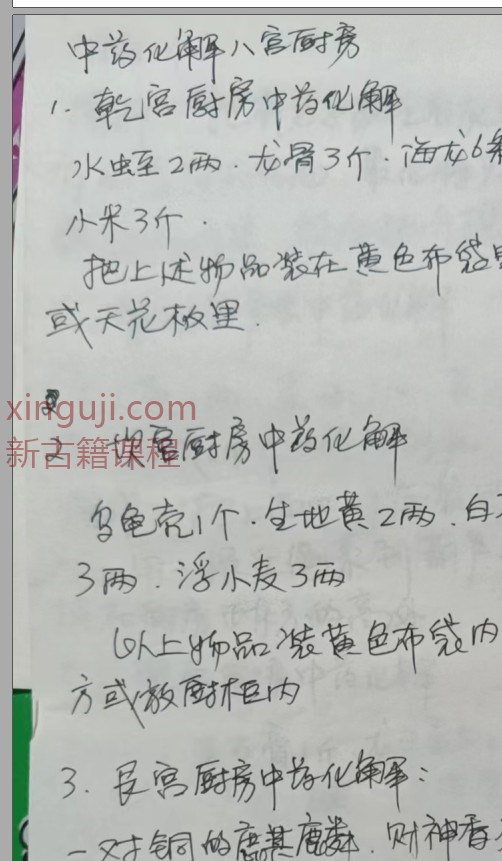 中药化解八宫厨房
1. 乾宫厨房中药化解
水虫至2两.龙骨3个.海龙6条
小米3个.
把上述物品装在黄色布袋里
或天花板里.
xinguji.com
新古籍课程
2 坎宫厨房中药化解
乌龟壳1个.生地黄2两.白
3两.浮小麦3两
以上物品装黄色布袋内
方或放厨柜内
3. 艮宫厨房中药化解:
一对铜的麒麟.财神香